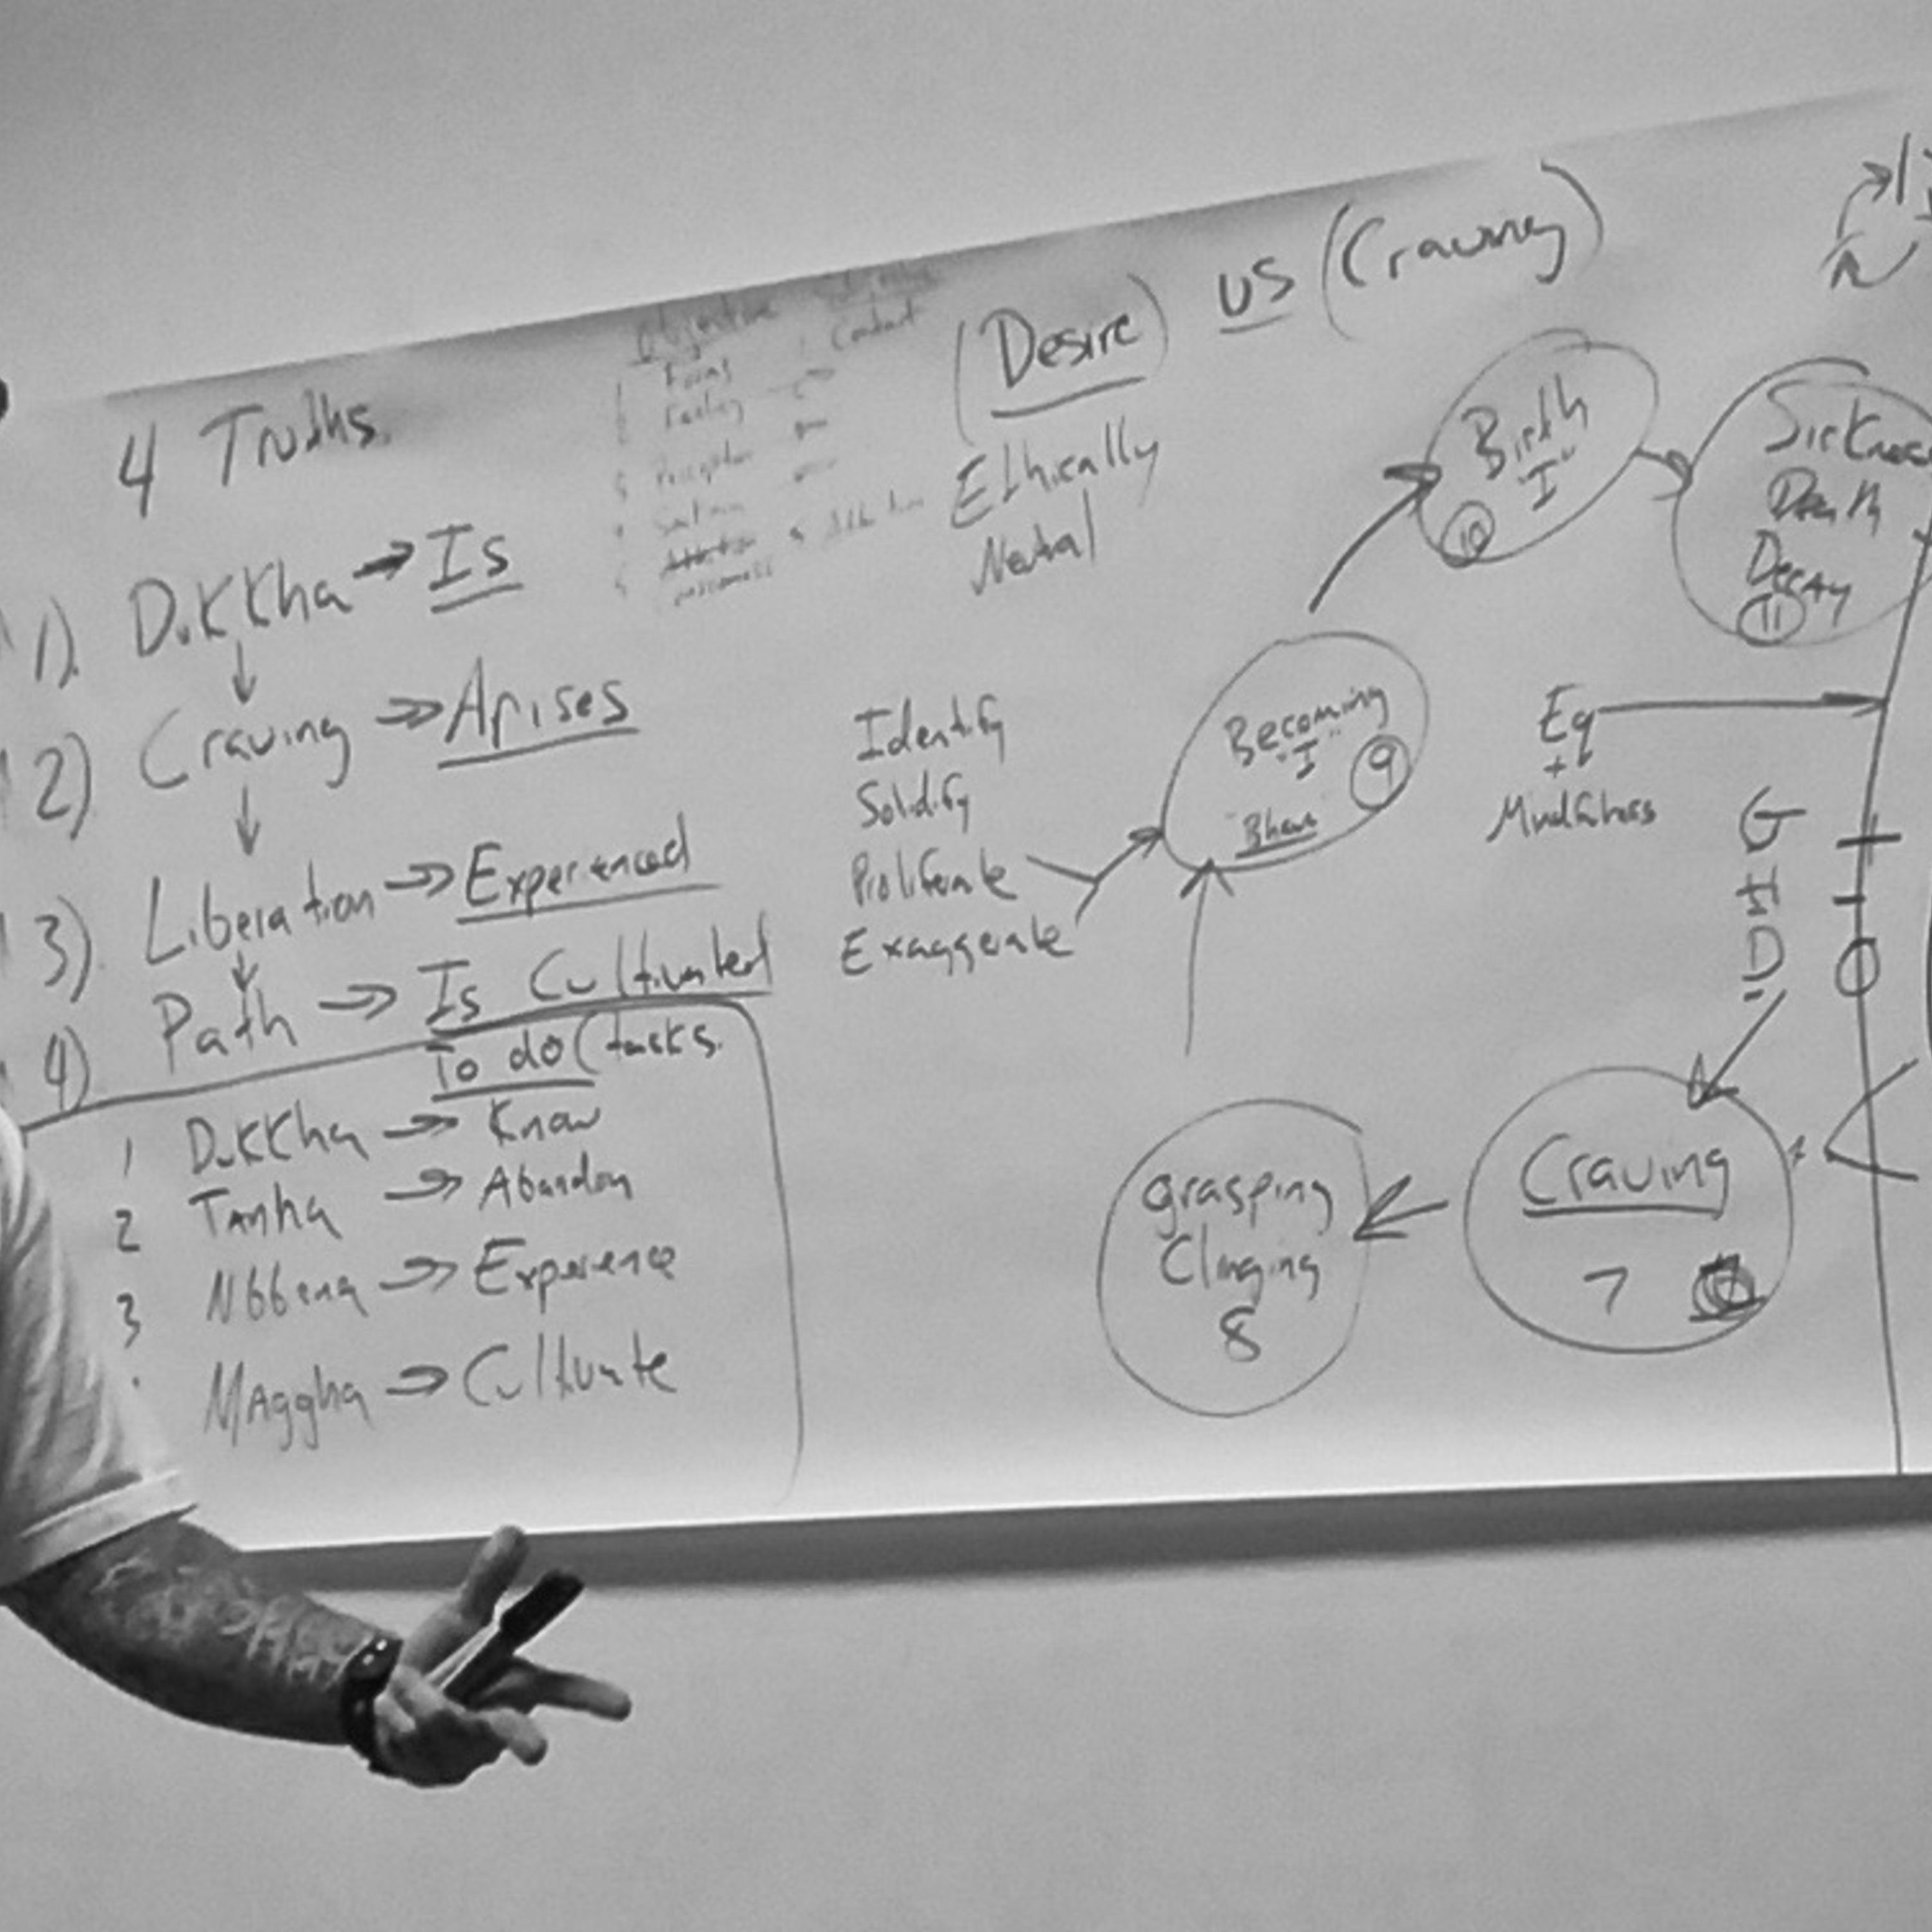 4 Truths.
1). Dukkha → Is
2) Craving → Arises
3) Liberation → Experienced
4) Path → Is Cultivated
To do (tasks.
1 Dukkha → Know
2 Tanha → Abandon
3 Nbbana → Experience
Maggha → Cultivate
Objective
Contact
Forms
Feeling
(Desire) vs (Craving)
Ethically
Neutral
Identify
Solidify
Proliferate
Exaggerate
Birth
"I"
10
Sickness
Death
Decay
11
Becoming
"I"
9
"Bhava
Eq
+
Mindfulness
G +
H -
D O
Craving
7
grasping
Clinging
8